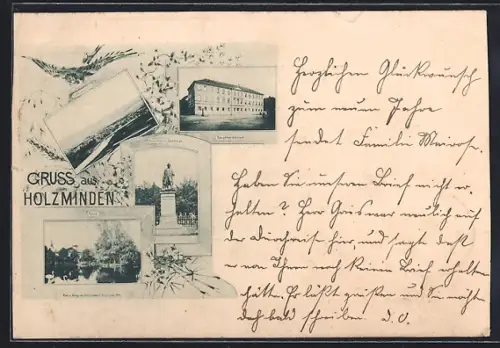 GRUSS aus
HOLZMINDEN
Herzlichen Glückwunsch
zum neuen Jahre
sendet Familie Meirose.
Haben Sie unseren Brief nicht er-
halten? Herr Gris war neulich auf
der Durchreise hier, und sagte daß
er von Ihnen noch keinen Brief erhalten
hätte. Er läßt grüßen und Sie möchten
doch bald schreiben. d. O.